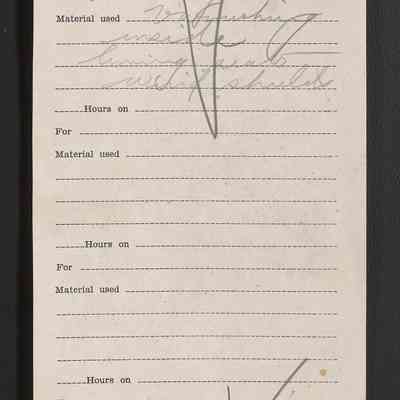 Material used
inside
lining
shields
Hours on
For
Material used
Hours on
For
Material used
Hours on